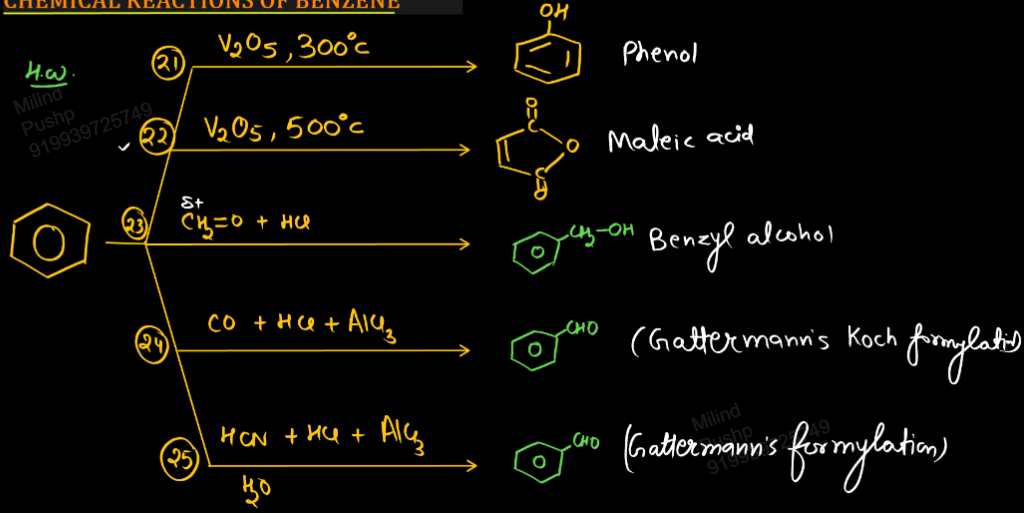 CHEMICAL REACTIONS OF BENZENE
H.W.
Milind
Pushp
919939725749
21 V₂O₅, 300°C OH Phenol
22 V₂O₅, 500°C O C O C O Maleic acid
23 δ+ CH₂=O + HCl CH₂-OH Benzyl alcohol
24 CO + HCl + AlCl₃ CHO (Gattermann's Koch formylation)
25 HCN + HCl + AlCl₃ CHO (Gattermann's formylation)
H₂O
Milind
Pushp